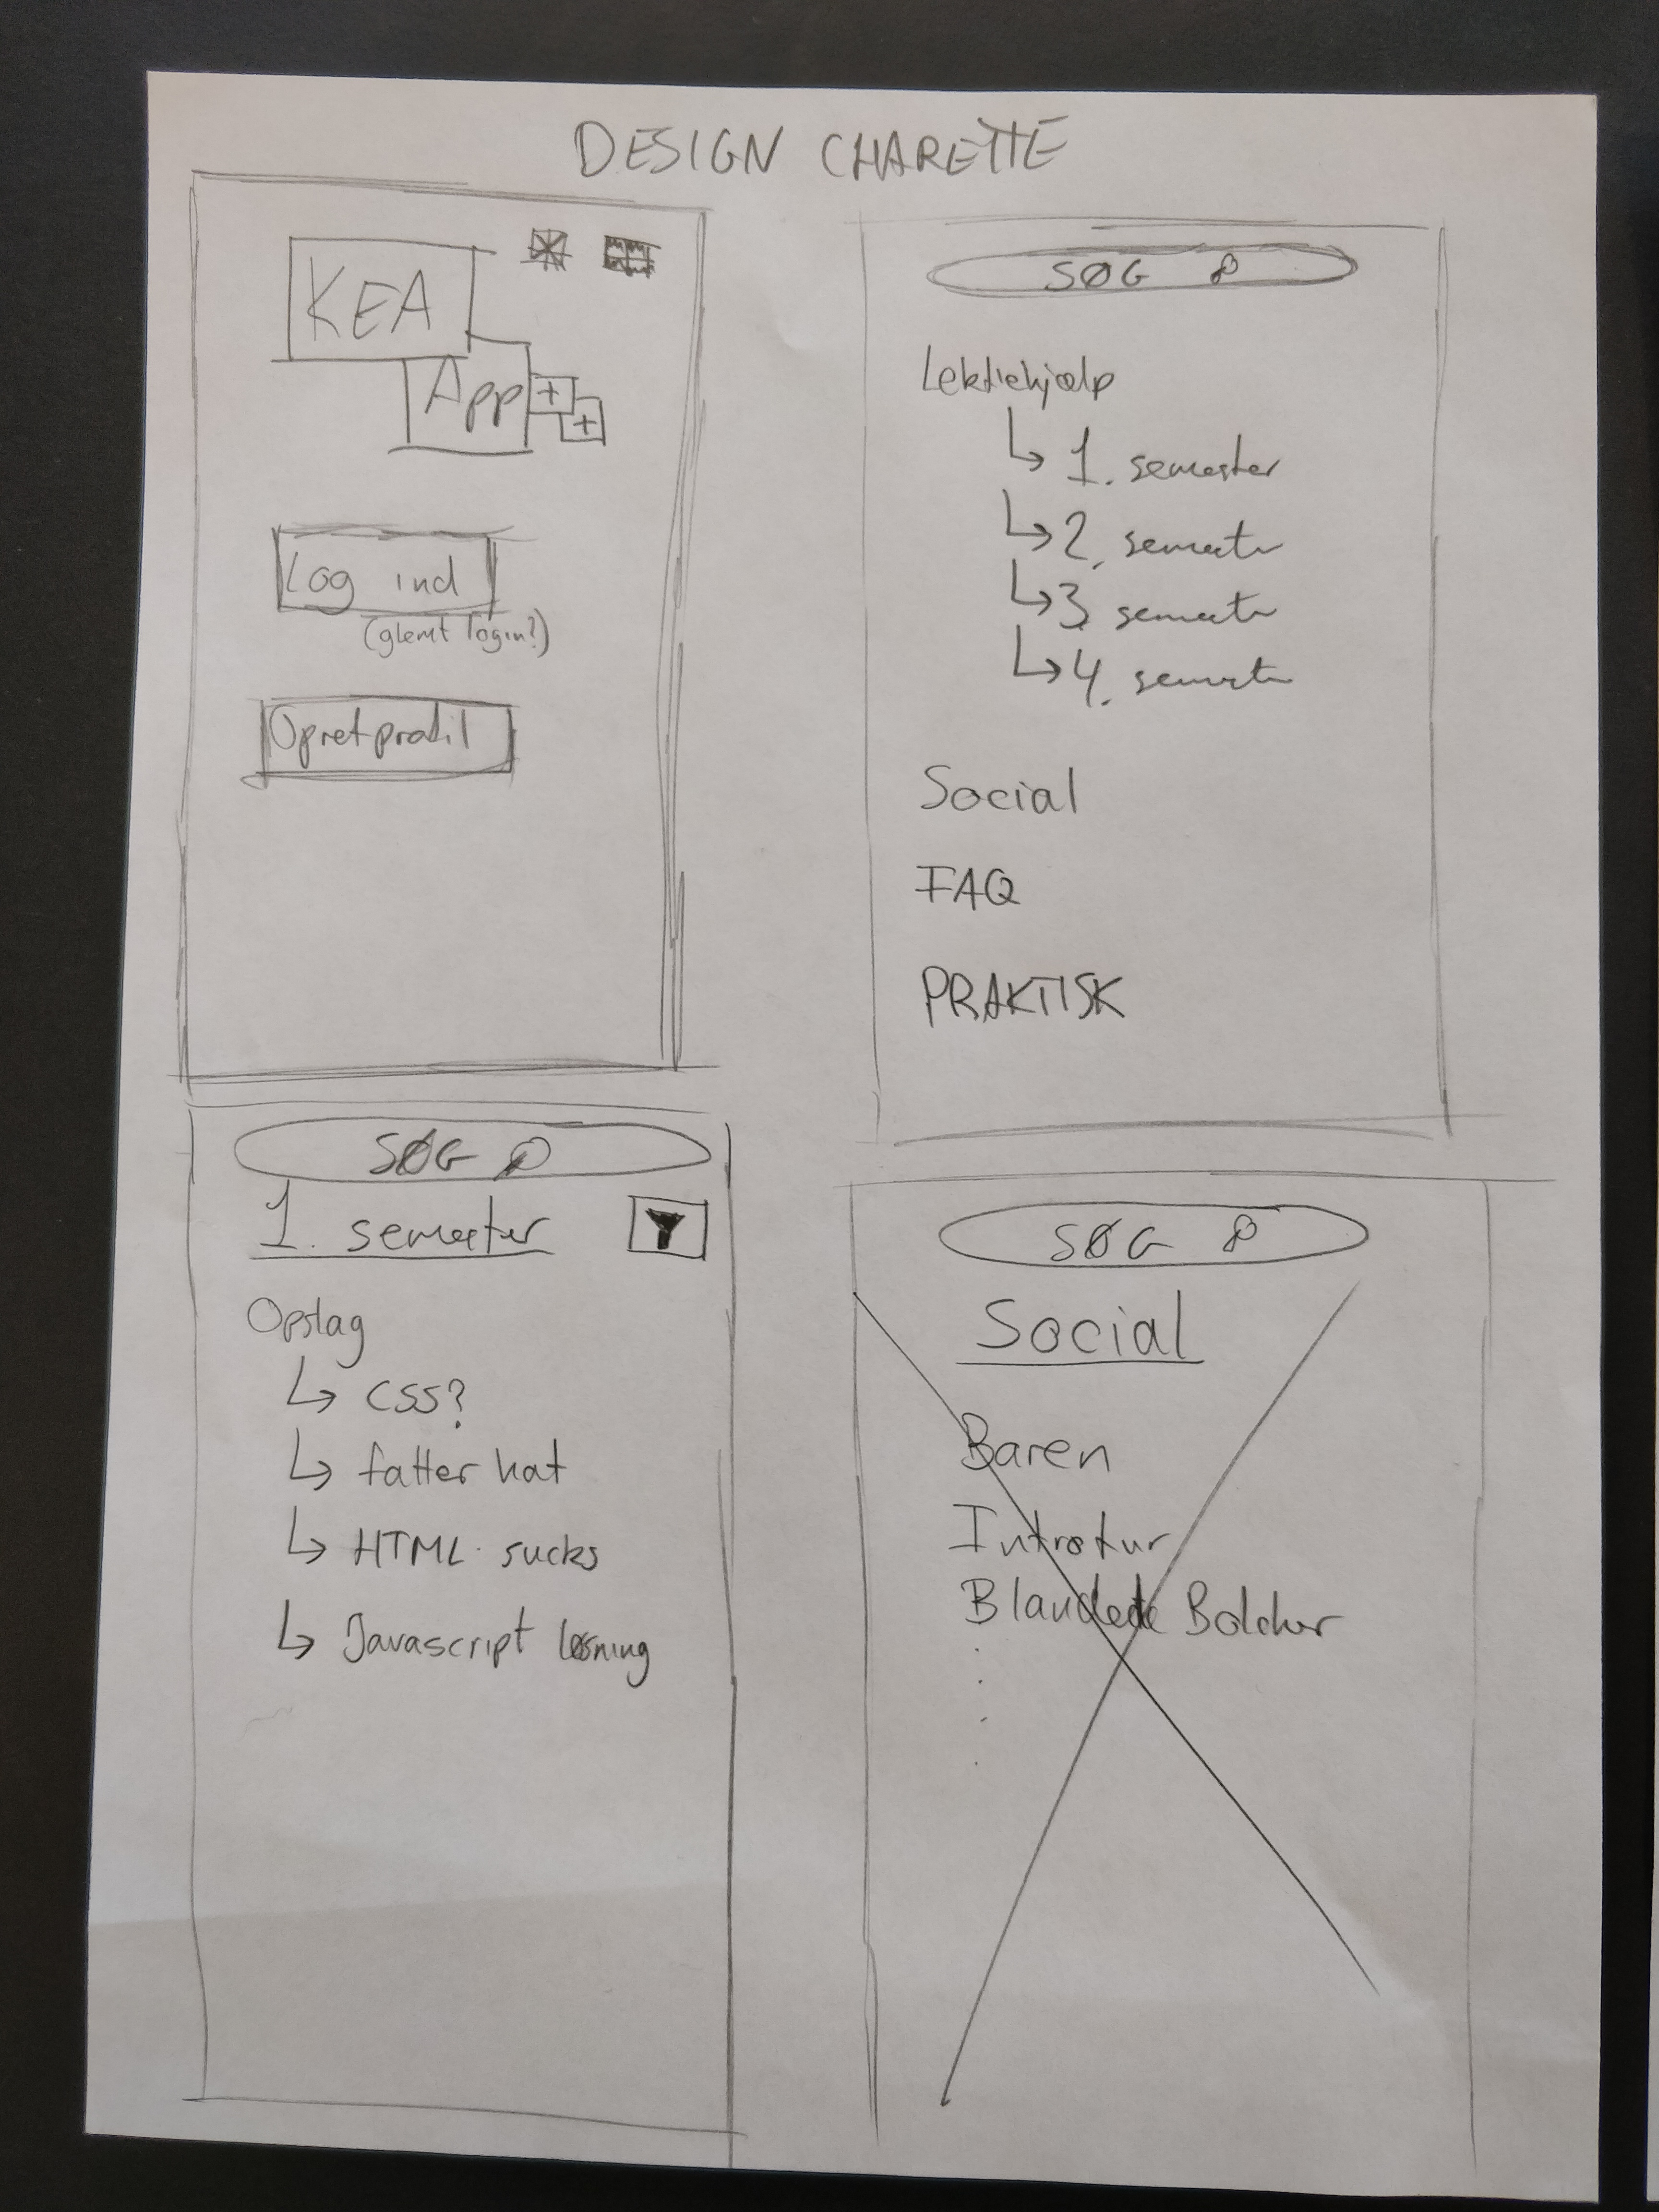 DESIGN CHARETTE
KEA
App
+
+
Log ind
(glemt login?)
Opret profil
SØG
Lektiehjælp
1. semester
2. semester
3. semester
4. semester
Social
FAQ
PRAKTISK
SØG
1. semester
Opslag
CSS?
fatter hat
HTML sucks
Javascript løsning
SØG
Social
Baren
Introtur
Blandede Bolcher